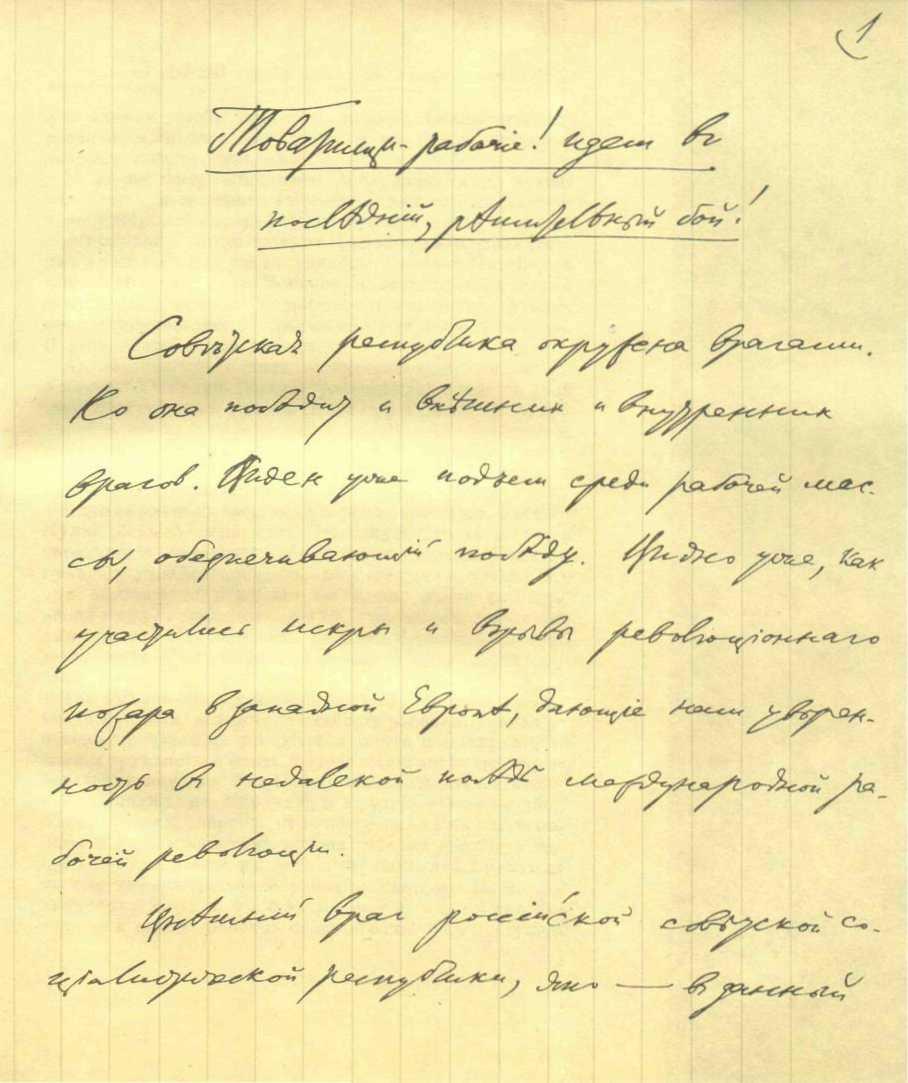 1
Товарищи-рабочіе! идем в
послѣдній, рѣшительный бой!
Совѣтская республика окружена врагами.
Но она побѣдит и внѣшних и внутренних
враговъ. Виден уже подъем среди рабочей мас-
сы, обеспечивающій побѣду. Видно уже, как
участились искры и взрывы революціоннаго
пожара в западной Европѣ, дающіе нам увѣрен-
ность в недалекой побѣдѣ международной ра-
бочей революціи.
Внѣшній враг россійской совѣтской со-
ціалистической республики, это — в данный